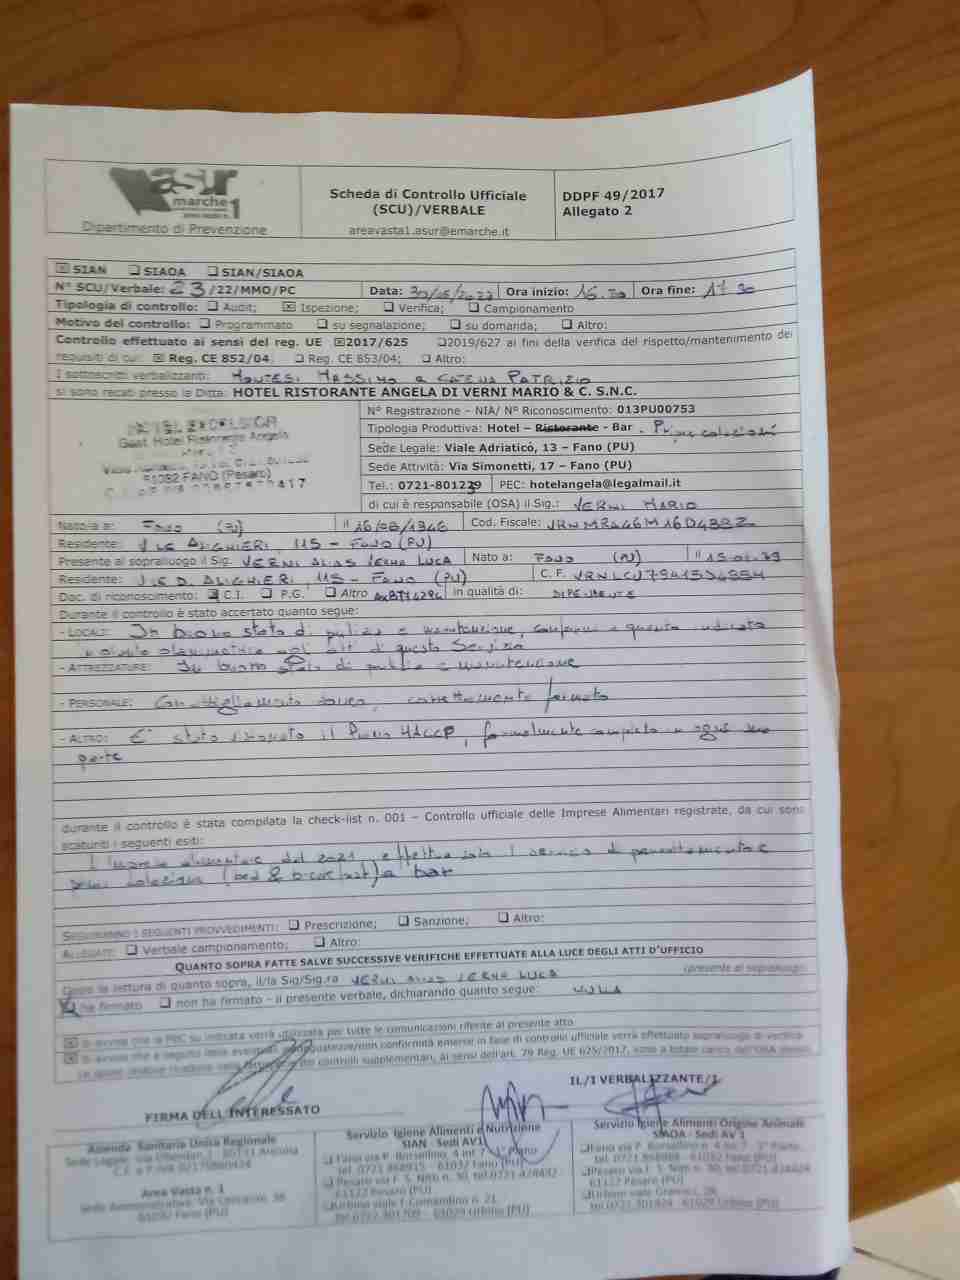 asur
marche 1
Dipartimento di Prevenzione
Scheda di Controllo Ufficiale
(SCU)/VERBALE
areavasta1.asur@emarche.it
DDPF 49/2017
Allegato 2
☒ SIAN ❑ SIAOA ❑ SIAN/SIAOA
N° SCU/Verbale: 23/22/MMO/PC Data: Ora inizio: 16.30 Ora fine: 17.30
Tipologia di controllo: ❑ Audit; ☒ Ispezione; ❑ Verifica; ❑ Campionamento
Motivo del controllo: ❑ Programmato ❑ su segnalazione; ❑ su domanda; ❑ Altro:
Controllo effettuato ai sensi del reg. UE ☒2017/625 ❑2019/627 ai fini della verifica del rispetto/mantenimento dei
requisiti di cui: ☒ Reg. CE 852/04. ❑ Reg. CE 853/04; ❑ Altro:
I sottoscritti verbalizzanti: MONTESI MASSIMO e CATENA PATRIZIO
si sono recati presso la Ditta: HOTEL RISTORANTE ANGELA DI VERNI MARIO & C. S.N.C.
HOTEL EXCELSIOR
Gest. Hotel Ristorante Angela
61032 FANO (Pesaro)
N° Registrazione – NIA/ N° Riconoscimento: 013PU00753
Tipologia Produttiva: Hotel – Ristorante - Bar
Sede Legale: Viale Adriatico, 13 – Fano (PU)
Sede Attività: Via Simonetti, 17 – Fano (PU)
Tel.: 0721-801239 PEC: hotelangela@legalmail.it
di cui è responsabile (OSA) il Sig.: VERNI MARIO
Nato/a a: FANO (PU) il 16/08/1946 Cod. Fiscale: VRNMRA46M16D488Z
Residente: V.LE ALIGHIERI, 115 - FANO (PU)
Presente al sopralluogo il Sig. VERNI ALIAS LUCA Nato a: FANO (PU) il
Residente: V.LE D. ALIGHIERI, 115 - FANO (PU) C. F.
Doc. di riconoscimento: C.I. ❑ P.G. ❑ Altro in qualità di: DIPENDENTE
Durante il controllo è stato accertato quanto segue:
- LOCALI: In buono stato di pulizia e manutenzione, conformi a quanto indicato
agli atti di questo Servizio
- ATTREZZATURE: In buono stato di pulizia e manutenzione
- PERSONALE: Con abbigliamento idoneo, correttamente formato
- ALTRO: E' stato visionato il Piano HACCP, formalmente completo in ogni sua
parte
durante il controllo è stata compilata la check-list n. 001 – Controllo ufficiale delle Imprese Alimentari registrate, da cui sono
scaturiti i seguenti esiti:
L'Impresa alimentare dal 2021 effettua solo il servizio di pernottamento e
prime colazioni (bed & breakfast) e bar
SEGUIRANNO I SEGUENTI PROVVEDIMENTI: ❑ Prescrizione; ❑ Sanzione; ❑ Altro:
ALLEGATI: ❑ Verbale campionamento; ❑ Altro:
QUANTO SOPRA FATTE SALVE SUCCESSIVE VERIFICHE EFFETTUATE ALLA LUCE DEGLI ATTI D'UFFICIO
Dopo la lettura di quanto sopra, il/la Sig/Sig.ra VERNI ALIAS LUCA (presente al sopralluogo)
☒ ha firmato ❑ non ha firmato - il presente verbale, dichiarando quanto segue: NULLA
☒ Si avvisa che la PEC su indicata verrà utilizzata per tutte le comunicazioni riferite al presente atto
☒ Si avvisa che a seguito di eventuali inadeguatezze/non conformità emerse in fase di controllo ufficiale verrà effettuato sopralluogo di verifica
controlli supplementari, ai sensi dell'art. 79 Reg. UE 625/2017, sono a totale carico dell'OSA
FIRMA DELL'INTERESSATO
IL/I VERBALIZZANTE/I
Azienda Sanitaria Unica Regionale
Area Vasta n. 1
61032 Fano (PU)
Servizio Igiene Alimenti e Nutrizione
SIAN - Sedi AV1
❑ Fano via P. Borsellino, 4 int. 7, 3° Piano
tel. 0721.868915 - 61032 Fano (PU)
❑ Pesaro via F. S. Nitti n. 30, tel.0721-424432
61122 Pesaro (PU)
❑ Urbino viale F. Comandino n. 21,
tel.0722.301709 - 61029 Urbino (PU)
Servizio Igiene Alimenti Origine Animale
SIAOA - Sedi AV 1
❑Fano via P. Borsellino n. 4 int. 7, 3° Piano
❑Pesaro via F. S. Nitti n. 30, tel.
61122 Pesaro (PU)
❑Urbino viale Gramsci, 28,
61029 Urbino (PU)